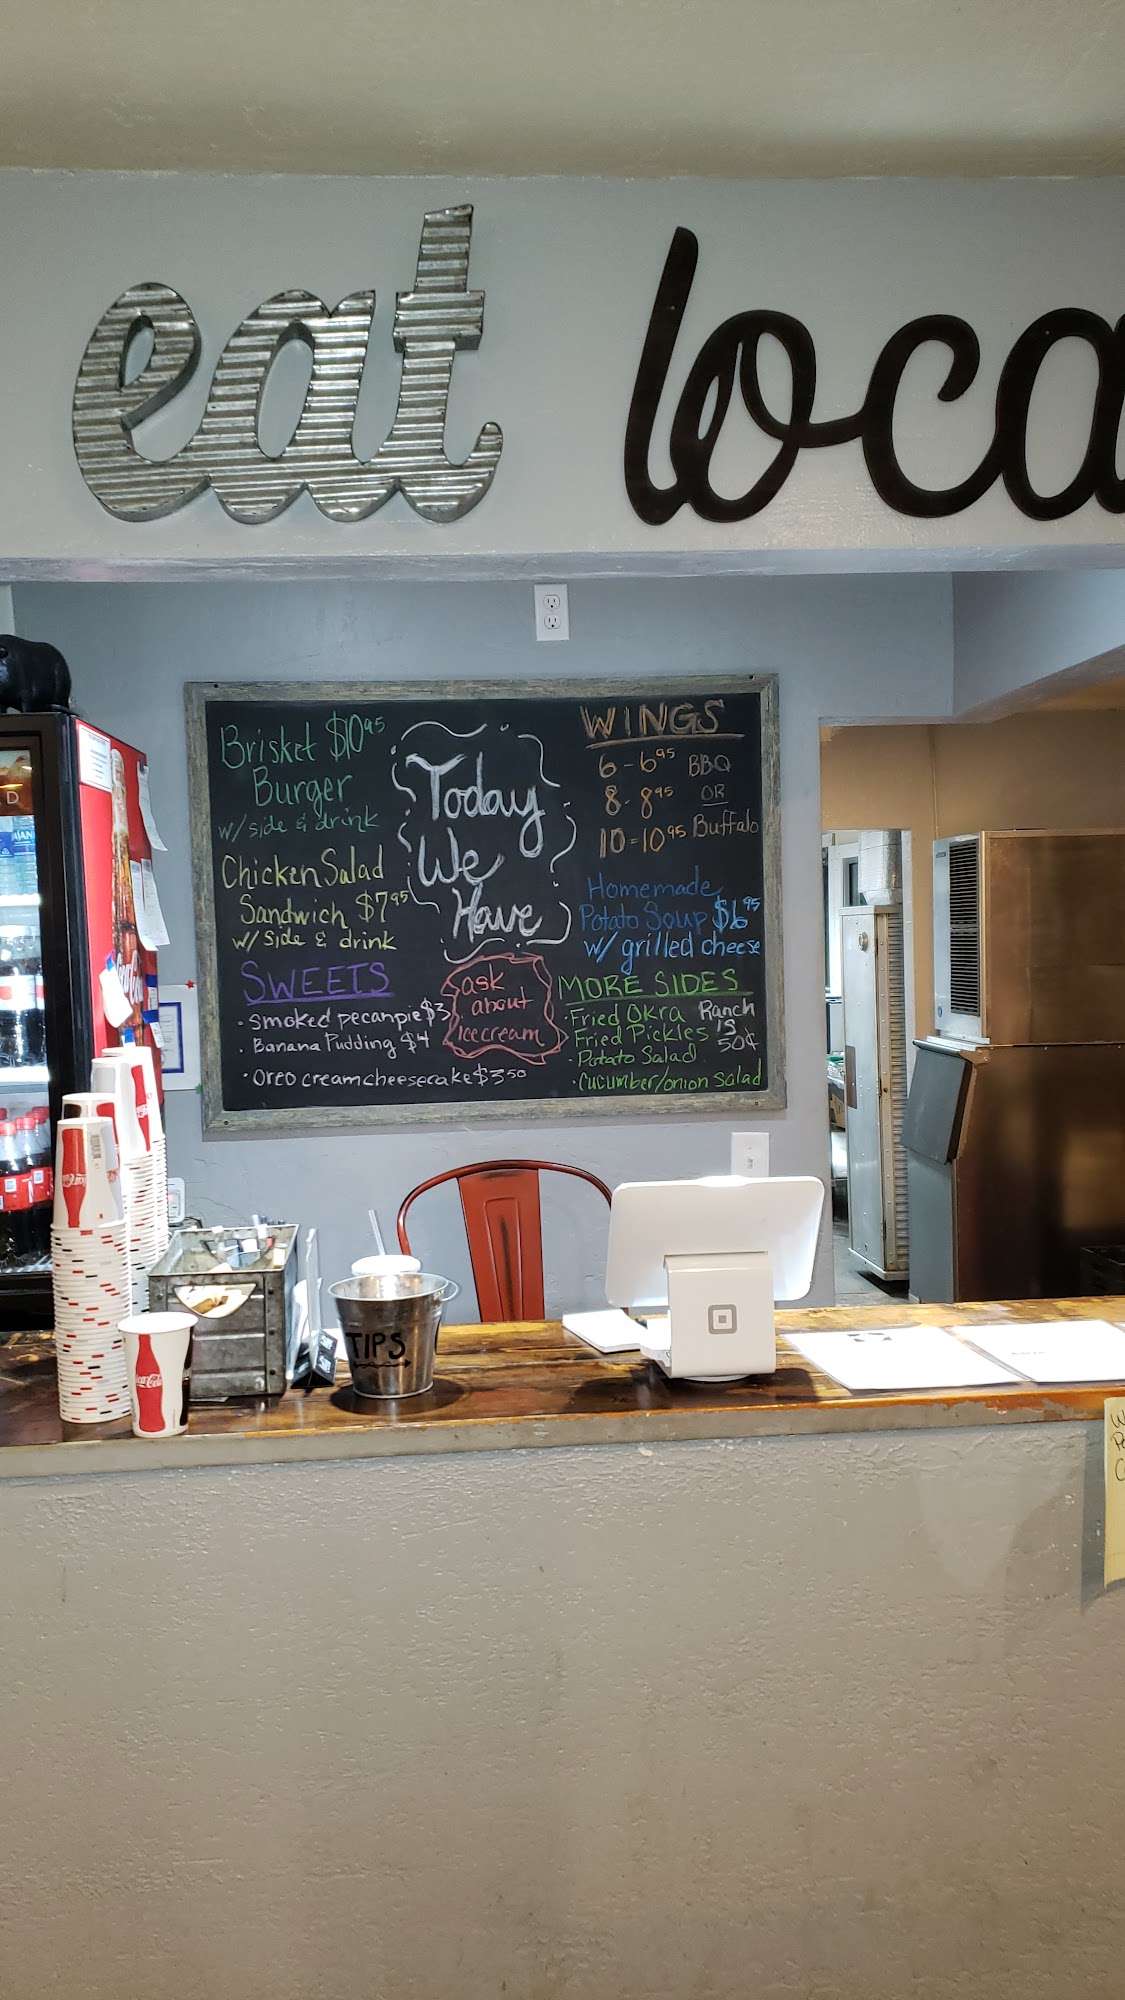 eat loca
Brisket $10.95
Burger
w/ side & drink
Chicken Salad
Sandwich $7.95
w/ side & drink
SWEETS
• Smoked pecan pie $3
• Banana Pudding $4
• Oreo creamcheesecake $3.50
Today
We
Have
ask
about
icecream
WINGS
6 - 6.95 BBQ
8 - 8.95 OR
10 = 10.95 Buffalo
Homemade
Potato Soup $6.95
w/ grilled cheese
MORE SIDES
• Fried Okra
• Fried Pickles
• Potato Salad
• Cucumber/onion Salad
Ranch
is
50¢
Coca-Cola
TIPS